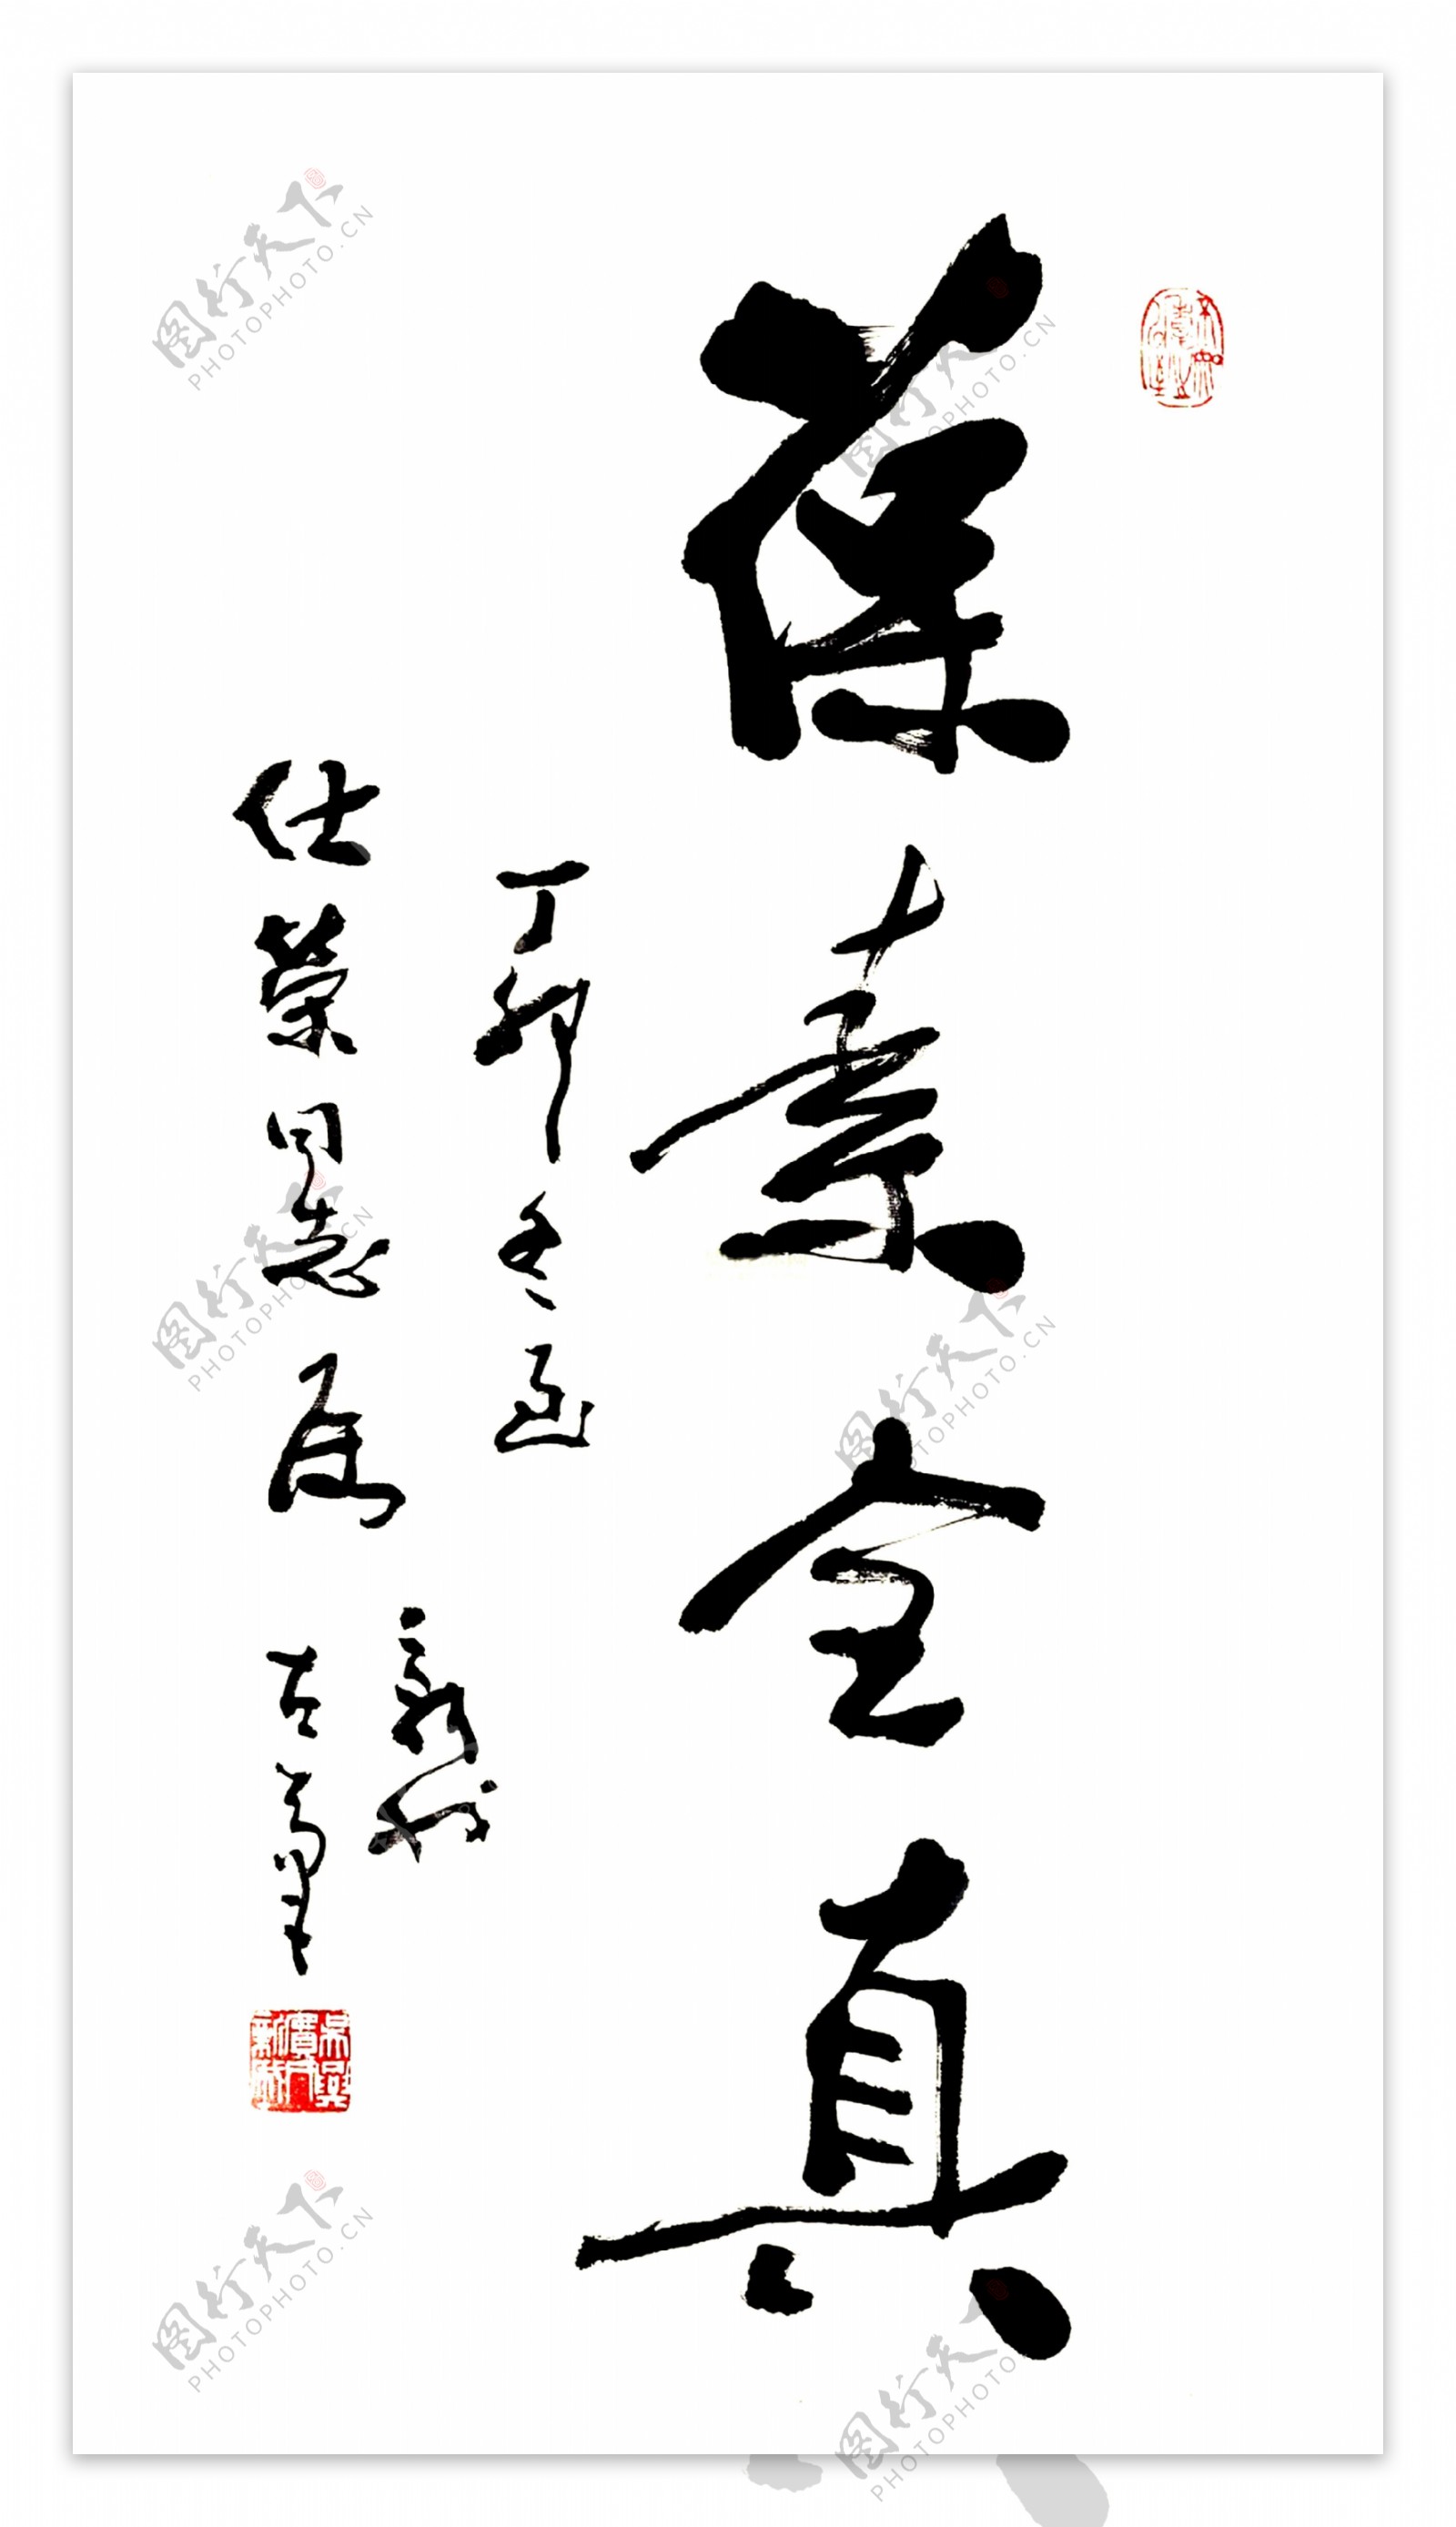 葆素全真
丁卯冬函
仕荣同志属
新州
左笔
图行天下
PHOTOPHOTO.CN
图行天下
PHOTOPHOTO.CN
图行天下
PHOTOPHOTO.CN
图行天下
PHOTOPHOTO.CN
图行天下
PHOTOPHOTO.CN
图行天下
PHOTOPHOTO.CN